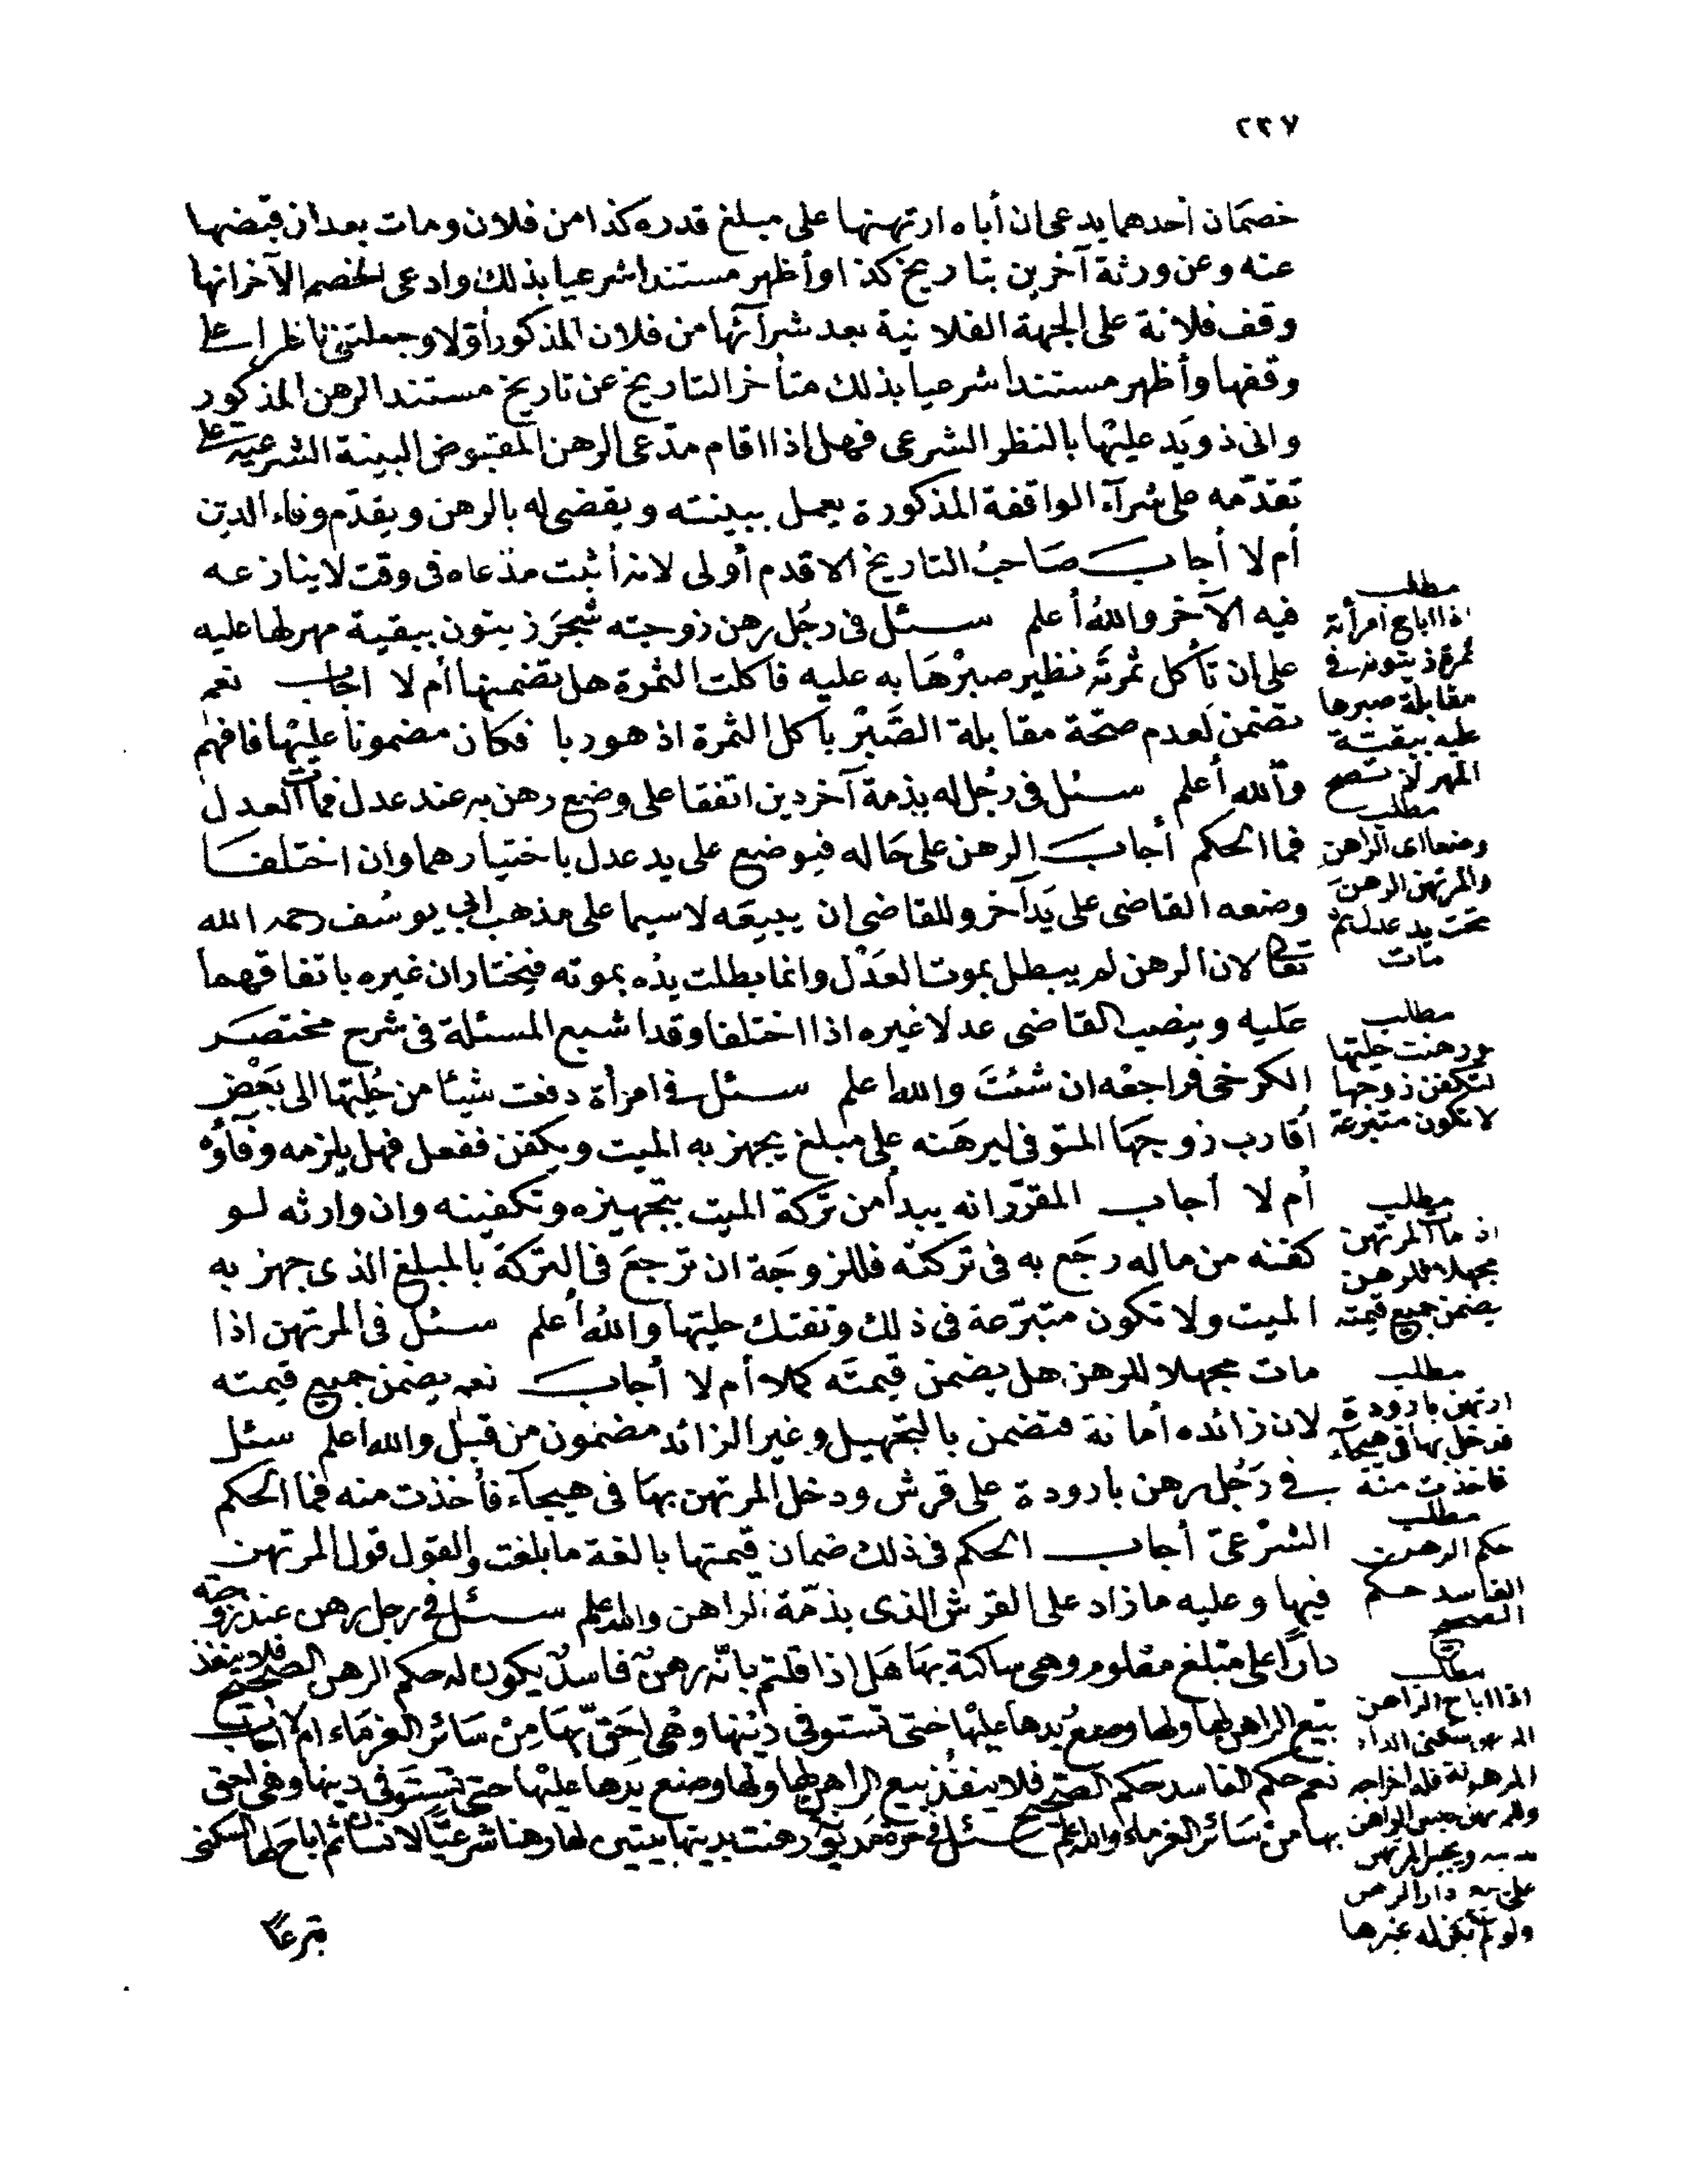 ٢٣٧
خصمان أحدهما يدعى ان أباه ارتهنها على مبلغ قدره كذا من فلان ومات بعد ان قبضها
عنه وعن ورثة آخرين بتاريخ كذا وأظهر مستندا شرعيا بذلك وادعى الخصم الآخر انها
وقف فلانة على الجهة الفلانية بعد شرآئها من فلان المذكور أولا وجعلتنى ناظرا على
وقفها وأظهر مستندا شرعيا بذلك متأخر التاريخ عن تاريخ مستند الرهن المذكور
وانى ذو يد عليها بالنظر الشرعى فهل اذا اقام مدّعى الرهن المقبوض البينة الشرعية على
تقدّمه على شرآء الواقفة المذكورة يعمل ببينته ويقضى له بالرهن ويقدّم وفاء الدين
أم لا أجاب صاحبُ التاريخ الاقدم أولى لانه أثبت مدّعاه فى وقت لا ينازعه
فيه الآخر واللهُ أعلم سئل فى رجُل رهن زوجته شجَرَ زيتون ببقية مهر لها عليه
على ان تأكل ثمرتَه نظير صبرْهَا به عليه فاكلت الثمرة هل تضمنها أم لا اجاب نعم
تضمن لعدم صحّة مقابلة الصَّبْر باكل الثمرة اذ هو ربا فكان مضمونا عليْها فافهم
والله أعلم سئل فى رجُل له بذمة آخر دين اتفقا على وضع رهن به عند عدل فمات العدل
فما الحكم أجاب الرهن على حَاله فيوضع على يد عدل باختيارهما وان اختلفا
وضعه القاضى على يَد آخر وللقاضى ان يبيعَه لا سيما على مذهب ابي يوسُف رحمه الله
تعالى لان الرهن لم يبطل بموت العَدْل وانما بطلت يدُه بموته فيختاران غيره باتفاقهما
عَليه وينصب القاضى عدلا غيره اذا اختلفا وقد اشبع المسئلة فى شرح مختصر
الكرخى فراجعْه ان شئتَ والله اعلم سئل فى امرأة دفعت شيئا من حُليّها الى بَعْض
أقارب زوجهَا المتوفى ليرهَنه على مبلغ يجهز به الميت ويكفن ففعل فهل يلزمه وفآؤه
أم لا أجاب المقرّر انه يبدأ من تركة الميت بتجهيزه وتكفينه وان وارثه لو
كفنه من ماله رجَع به فى تركته فللزوجَة ان ترجعَ فى التركة بالمبلغ الذى جهز به
الميت ولا تكون متبرّعة فى ذلك وتفتك حليتها واللهُ أعلم سئل فى المرتهن اذا
مات مجهلا للرهن هل يضمن قيمتَه كملا أم لا أجاب نعم يضمن جميع قيمته
لان زائده أمانة فتضمن بالتجهيل وغير الزائد مضمون من قبل والله اعلم سئل
في رَجُل رهن بارودة على قرش ودخل المرتهن بهَا فى هيجآء فأخذت منه فما الحكم
الشرْعىّ أجاب الحكم فى ذلك ضمان قيمتها بالغة ما بلغت والقول قول المرتهن
فيها وعليه ما زاد على القرش الذى بذمّة الراهن والله اعلم سئل في رجل رهن عند زوجته
دارًا على مبْلغ معْلوم وهى ساكنة بهَا هَل اذا قلتم بانّه رهنٌ فاسدٌ يكون له حكم الرهن الصحيح فلا ينفذ
بيع الراهن لها ولها وضعُ يدها عليْها حتى تستوفى ديْنها وهْى احَقّ بهَا مِنْ سَائر الغرمَاء ام لا أجاب
نعم حكم الفاسد حكم الصحيح فلا ينفُذ بيع الراهن لها ولها وضع يَدها عليْها حتى تستوفى دينها وهى احق
بها من سَائر الغرماء والله اعلم سئل في رهنت بدينها بيتين لها رهنا شرعيًا ثم اباح لها السكنى
تبرعًا
مطلب
اذا اباح امرأته
ثمرة زيتونه فى
مقابلة صبرها
عليه ببقيّة
المهر لا تصح
مطلب
وضعا اى الراهن
والمرتهن الرهنَ
تحت يد عدل ثم
مات
مطلب
ورهنت حليتها
لتكفن زوجها
لا تكون متبرعة
مطلب
اذ مات المرتهن
مجهلا للرهن
يضمن جميع قيمته
مطلب
ارتهن بارودة
فدخل بها فى هيجآء
فاخذت منه
مطلب
حكم الرهن
الفاسد حكم
الصحيح
مطلب
اذا اباح الراهن
سكنى الدار
المرهونة فله اخراجه
وللمرتهن حبس الراهن
ويجبر المرتهن
على بيع دار الرهن
ولو لم يكن له غيرها